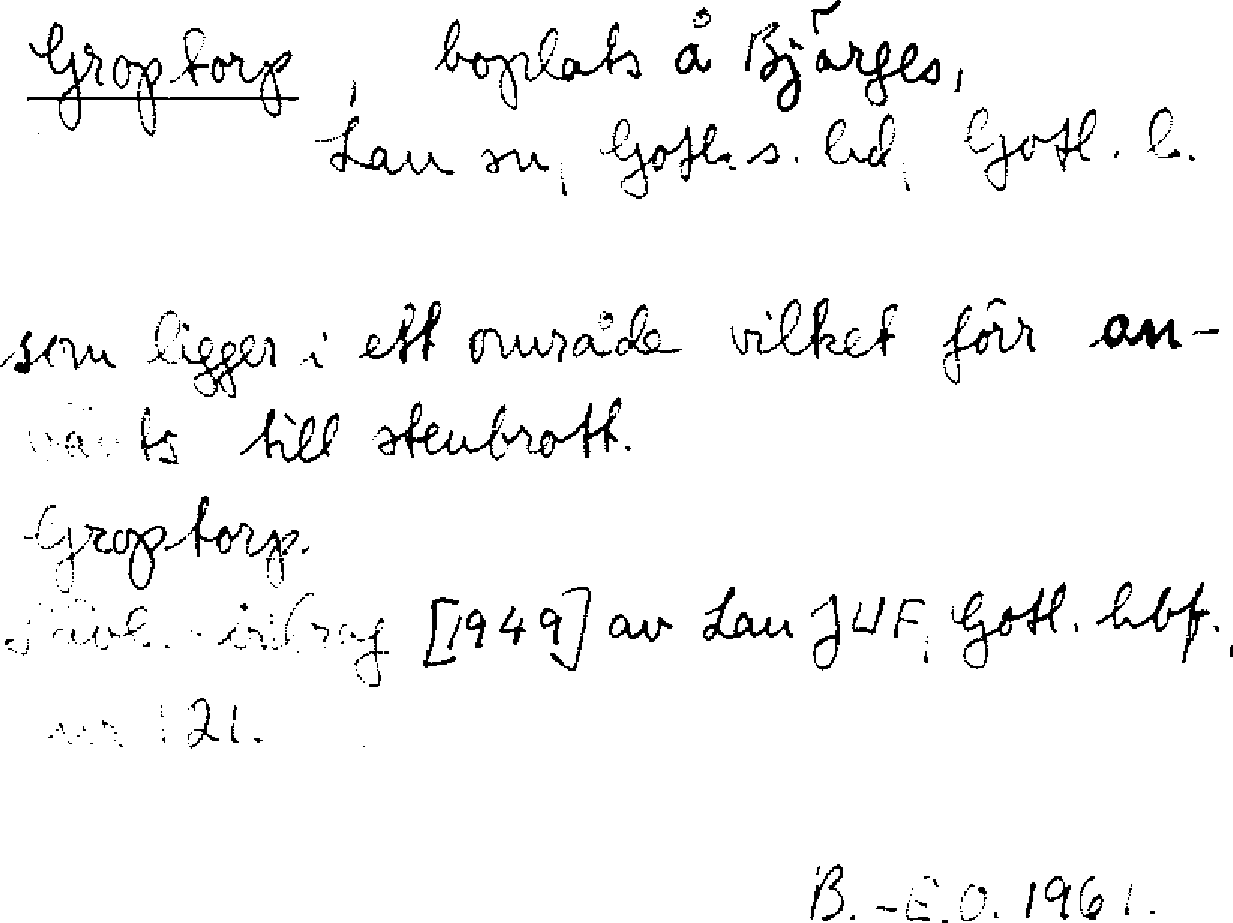 Groptorp, boplats å Bjärges,
Lau sn, Gotl. s. hd, Gotl. l.
som ligger i ett område vilket förr an-
vänts till stenbrott.
Groptorp.
Tävl.-bidrag [1949] av Lau JUF, Gotl. hbf.,
nr 121.
B.-E.O. 1961.